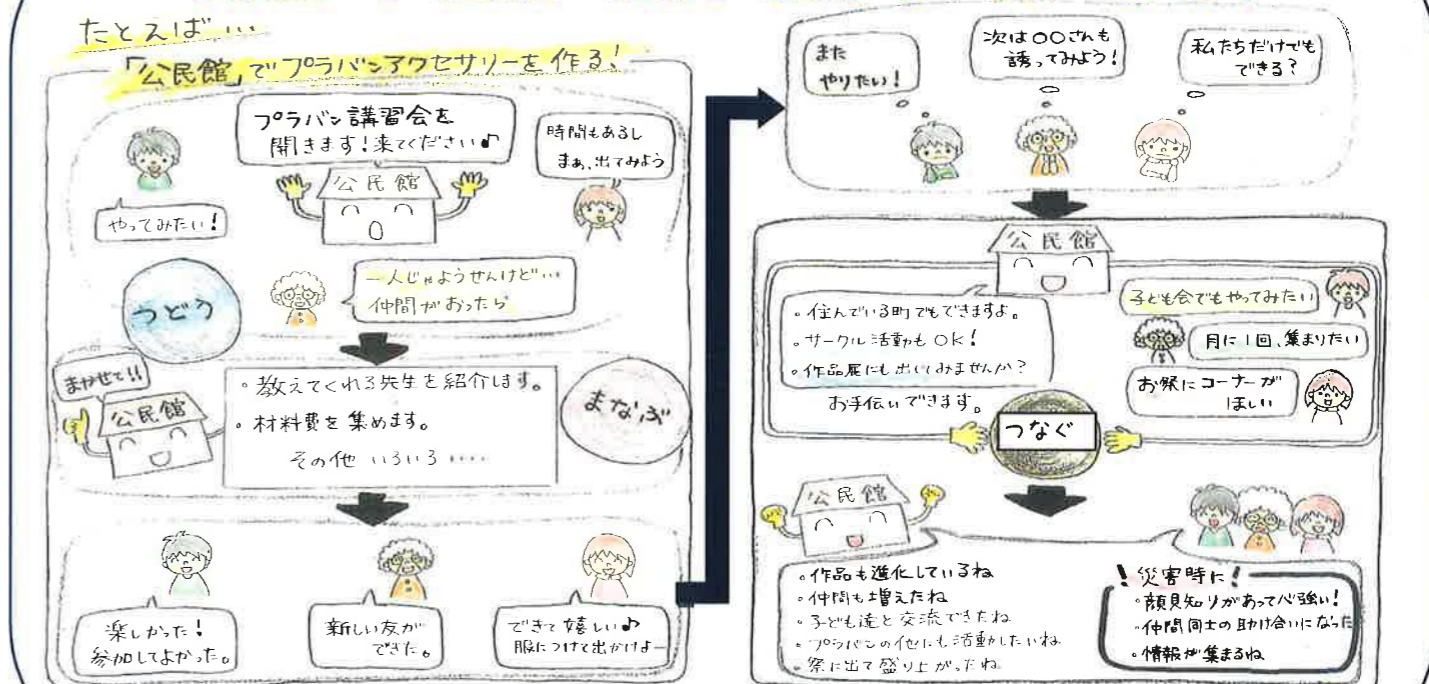 たとえば・・・
「公民館」でプラバンアクセサリーを作る！
プラバン講習会を
開きます！来てください♪
時間もあるし
まぁ、出てみよう
公民館
やってみたい！
つどう
一人じゃようせんけど・・
仲間がおったら
まかせて!!
公民館
・教えてくれる先生を紹介します。
・材料費を集めます。
その他 いろいろ・・・・
まなぶ
楽しかった！
参加してよかった。
新しい友が
できた。
できて嬉しい♪
服につけて出かけよー
また
やりたい！
次は〇〇さんも
誘ってみよう！
私たちだけでも
できる？
公民館
・住んでいる町でもできますよ。
・サークル活動もOK！
・作品展にも出してみませんか？
お手伝いできます。
子ども会でもやってみたい
月に1回、集まりたい
お祭にコーナーが
ほしい
つなぐ
公民館
・作品も進化しているね
・仲間も増えたね
・子ども達と交流できたね
・プラバンの他にも活動したいね
・祭に出て盛り上がったね
！災害時に！
・顔見知りがあって心強い！
・仲間同士の助け合いになった
・情報が集まるね